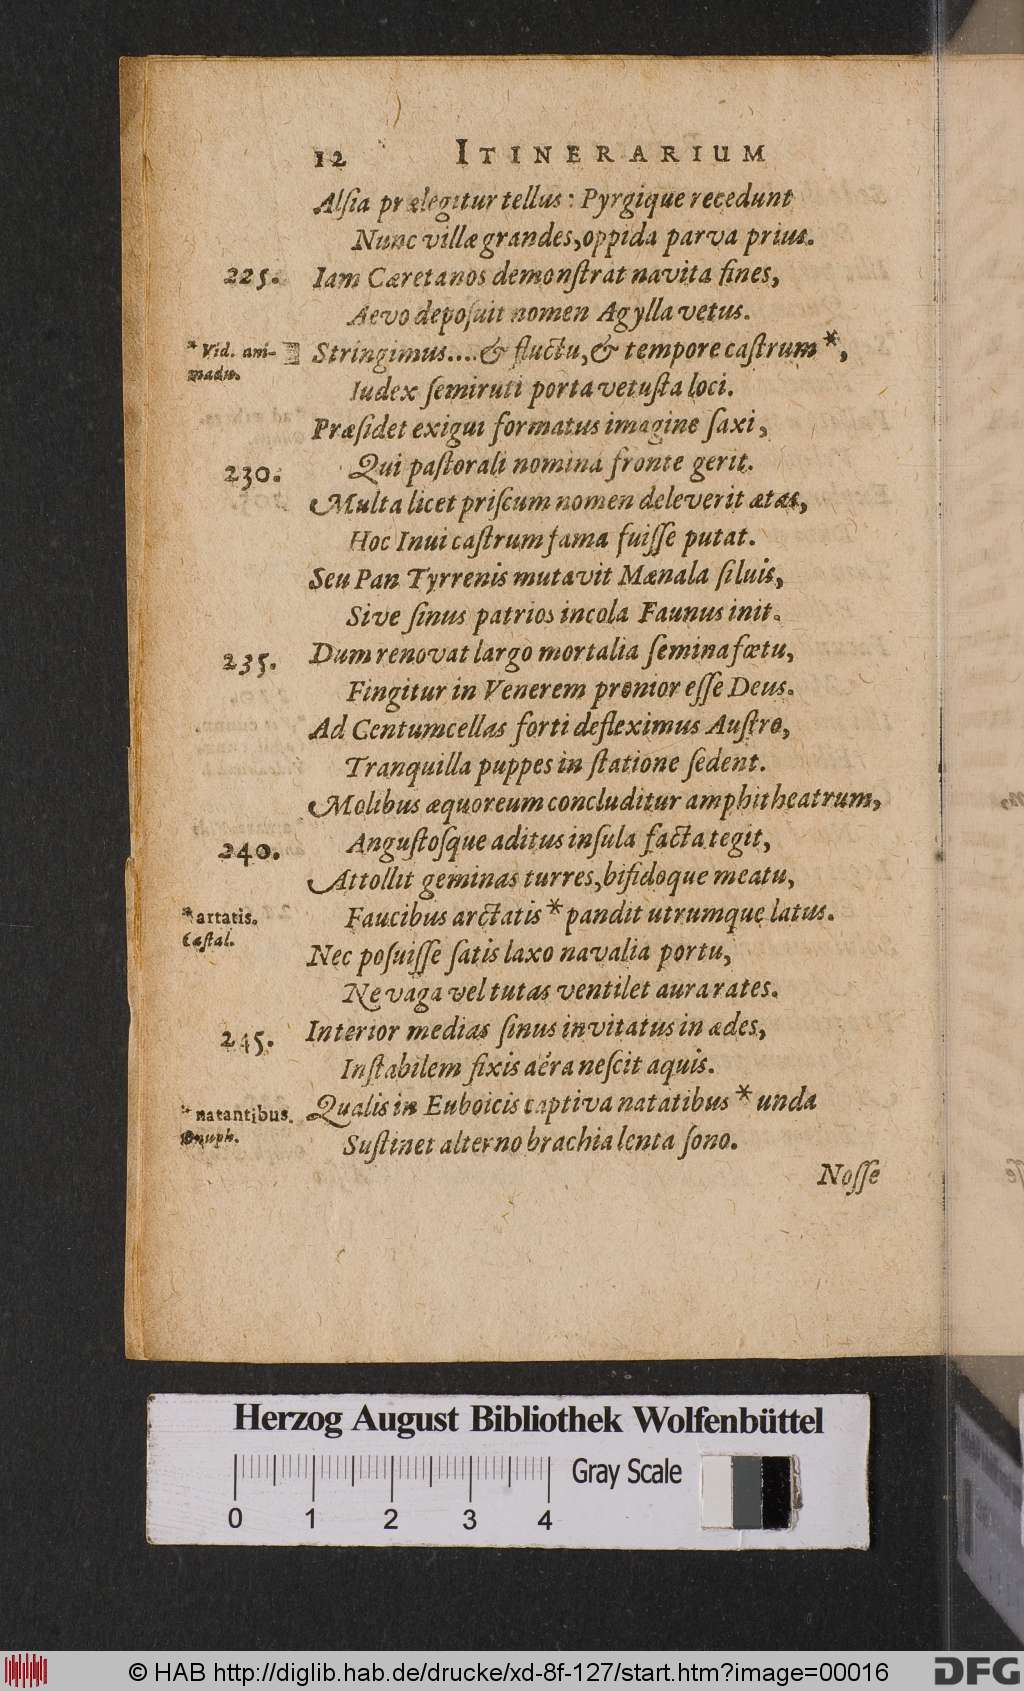 12 ITINERARIUM
Alſia prælegitur tellus: Pyrgique recedunt
Nunc villæ grandes, oppida parva prius.
225. Iam Cæretanos demonſtrat navita fines,
Aevo depoſuit nomen Agylla vetus.
* Vid. ani-
madv.
Stringimus.... & fluctu, & tempore caſtrum*,
Iudex ſemiruti porta vetuſta loci.
Præſidet exigui formatus imagine ſaxi,
230. Qui paſtorali nomina fronte gerit.
Multa licet priſcum nomen deleverit ætas,
Hoc Inui caſtrum fama fuiſſe putat.
Seu Pan Tyrrenis mutavit Mænala ſiluis,
Sive ſinus patrios incola Faunus init.
235. Dum renovat largo mortalia ſemina fœtu,
Fingitur in Venerem pronior eſſe Deus.
Ad Centumcellas forti defleximus Auſtro,
Tranquilla puppes in ſtatione ſedent.
Molibus æquoreum concluditur amphitheatrum,
240. Anguſtoſque aditus inſula facta tegit,
Attollit geminas turres, bifidoque meatu,
* artatis.
Caſtal.
Faucibus arctatis* pandit utrumque latus.
Nec poſuiſſe ſatis laxo navalia portu,
Ne vaga vel tutas ventilet aura rates.
245. Interior medias ſinus invitatus in ædes,
Inſtabilem fixis aëra neſcit aquis.
* natantibus.
Onuph.
Qualis in Euboicis captiva natatibus* unda
Suſtinet alterno brachia lenta ſono.
Noſſe
Herzog August Bibliothek Wolfenbüttel
Gray Scale
0 1 2 3 4
© HAB http://diglib.hab.de/drucke/xd-8f-127/start.htm?image=00016
DFG